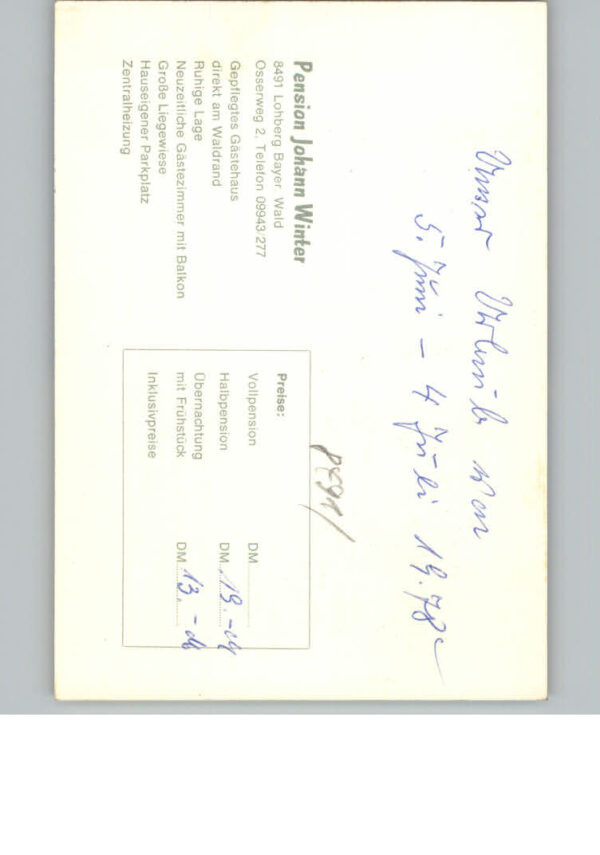 Unser Urlaub von
5. Juni – 4 Juli 19.78
Pension Johann Winter
8491 Lohberg Bayer Wald
Osserweg 2, Telefon 09943-277
Gepflegtes Gästehaus
direkt am Waldrand
Ruhige Lage
Neuzeitliche Gästezimmer mit Balkon
Große Liegewiese
Hauseigener Parkplatz
Zentralheizung
8491/
Preise:
Vollpension DM
Halbpension DM 19.-
Übernachtung
mit Frühstück DM 13.-
Inklusivpreise